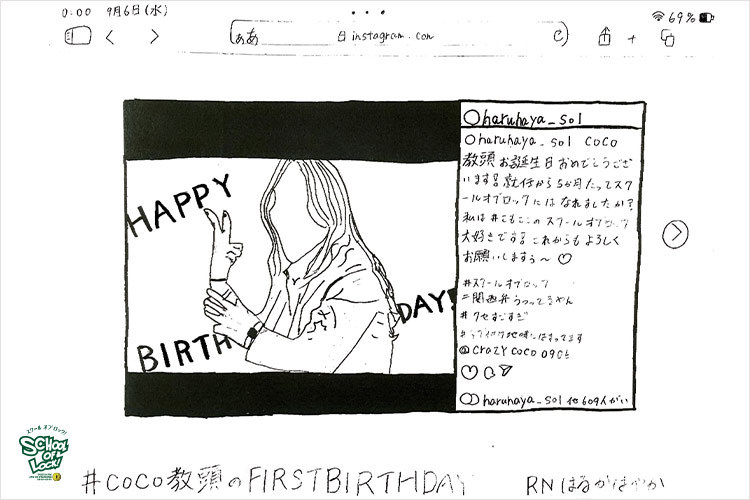 0:00 9月6日(水)
69%
ぁあ instagram.com
haruhaya_sol
haruhaya_sol coco
教頭お誕生日おめでとうござ
います 就任から5か月たってスク
ールオブロックにはなれましたか?
私は もこここのスクールオブロック
大好きです これからもよろしく
お願いしますぅ〜♡
#スクールオブロック
#関西弁うつってるやん
#クセすごすぎ
地味にはまってます
@crazy coco 09
haruhaya_sol 他609人がい
HAPPY
BIRTH
DAY!
スクールオブロック!
SCHOOL
OF
LOCK!
#COCO教頭のFIRSTBIRTHDAY
RNはるかはやか